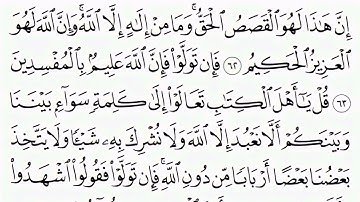 إِنَّ هَٰذَا لَهُوَ ٱلْقَصَصُ ٱلْحَقُّ ۚ وَمَا مِنْ إِلَٰهٍ إِلَّا ٱللَّهُ ۚ وَإِنَّ ٱللَّهَ لَهُوَ
ٱلْعَزِيزُ ٱلْحَكِيمُ ٦٢ فَإِن تَوَلَّوْا۟ فَإِنَّ ٱللَّهَ عَلِيمٌۢ بِٱلْمُفْسِدِينَ
٦٣ قُلْ يَٰٓأَهْلَ ٱلْكِتَٰبِ تَعَالَوْا۟ إِلَىٰ كَلِمَةٍ سَوَآءٍۭ بَيْنَنَا
وَبَيْنَكُمْ أَلَّا نَعْبُدَ إِلَّا ٱللَّهَ وَلَا نُشْرِكَ بِهِۦ شَيْـًٔا وَلَا يَتَّخِذَ
بَعْضُنَا بَعْضًا أَرْبَابًا مِّن دُونِ ٱللَّهِ ۚ فَإِن تَوَلَّوْا۟ فَقُولُوا۟ ٱشْهَدُوا۟